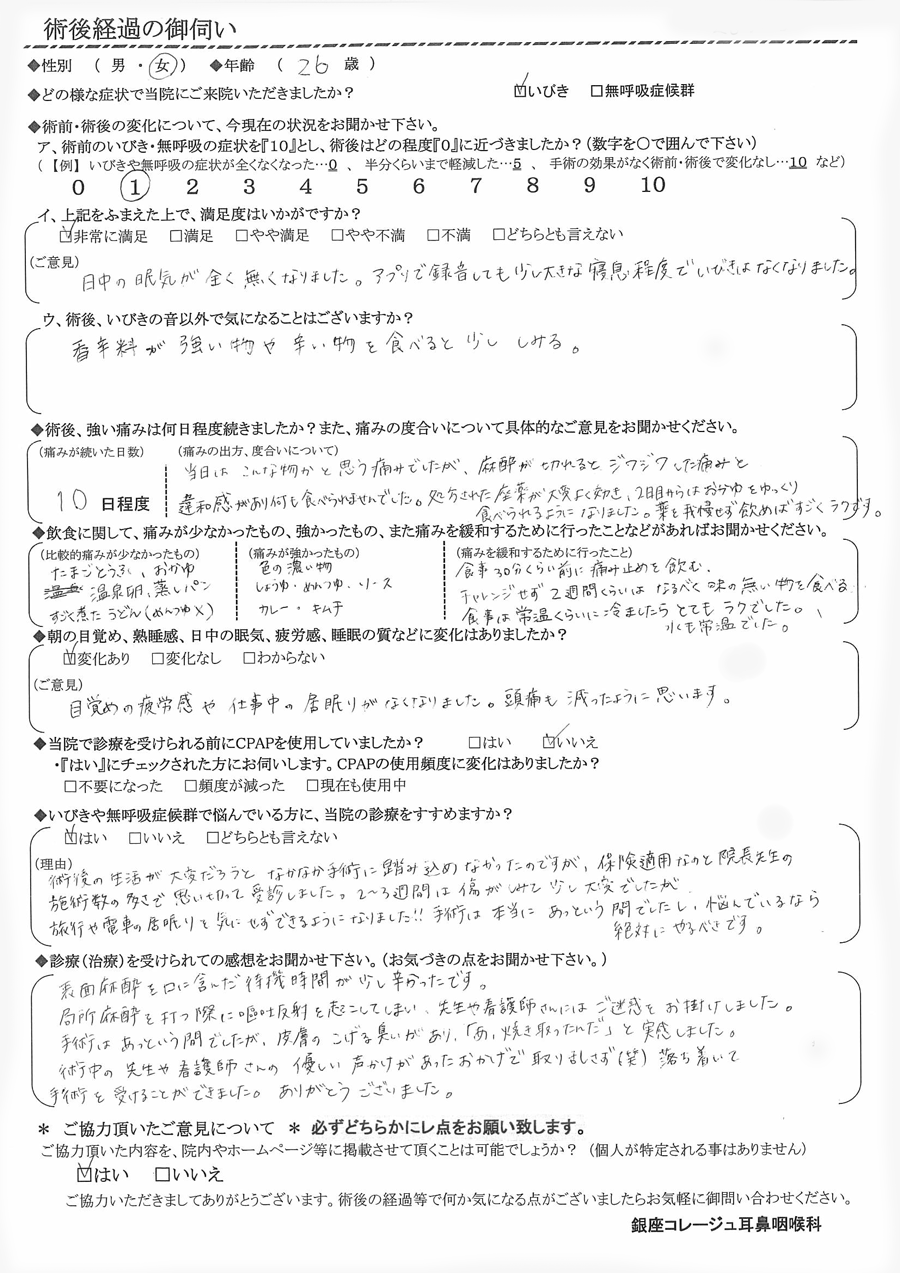 術後経過の御伺い
◆性別 ( 男 ・ 女 ) ◆年齢 ( 26 歳 )
◆どの様な症状で当院にご来院いただきましたか? ☑いびき □無呼吸症候群
◆術前・術後の変化について、今現在の状況をお聞かせ下さい。
ア、術前のいびき・無呼吸の症状を『10』とし、術後はどの程度『0』に近づきましたか?(数字を〇で囲んで下さい)
(【例】 いびきや無呼吸の症状が全くなくなった…0 、 半分くらいまで軽減した…5 、 手術の効果がなく術前・術後で変化なし…10 など)
0 1 2 3 4 5 6 7 8 9 10
イ、上記をふまえた上で、満足度はいかがですか?
☑非常に満足 □満足 □やや満足 □やや不満 □不満 □どちらとも言えない
(ご意見)
日中の眠気が全く無くなりました。アプリで録音しても少し大きな寝息程度でいびきはなくなりました。
ウ、術後、いびきの音以外で気になることはございますか?
香辛料が強い物や辛い物を食べると少ししみる。
◆術後、強い痛みは何日程度続きましたか?また、痛みの度合いについて具体的なご意見をお聞かせください。
(痛みが続いた日数) (痛みの出方、度合いについて)
当日はこんな物かと思う痛みでしたが、麻酔が切れるとジワジワした痛みと
10 日程度 違和感があり何も食べられませんでした。処方された座薬が大変よく効き、2日目からはおかゆをゆっくり
食べられるようになりました。薬を我慢せず飲めばすごくラクです。
◆飲食に関して、痛みが少なかったもの、強かったもの、また痛みを緩和するために行ったことなどがあればお聞かせください。
(比較的痛みが少なかったもの) (痛みが強かったもの) (痛みを緩和するために行ったこと)
たまごとうふ、おかゆ 色の濃い物 食事30分くらい前に痛み止めを飲む。
温泉卵、蒸しパン しょうゆ・めんつゆ・ソース チャレンジせず2週間くらいはなるべく味の無い物を食べる
すごく煮たうどん(めんつゆ×) カレー・キムチ 食事は常温くらいに冷ましたらとてもラクでした。
水も常温でした。
◆朝の目覚め、熟睡感、日中の眠気、疲労感、睡眠の質などに変化はありましたか?
☑変化あり □変化なし □わからない
(ご意見)
目覚めの疲労感や仕事中の居眠りがなくなりました。頭痛も減ったように思います。
◆当院で診療を受けられる前にCPAPを使用していましたか? □はい ☑いいえ
・『はい』にチェックされた方にお伺いします。CPAPの使用頻度に変化はありましたか?
□不要になった □頻度が減った □現在も使用中
◆いびきや無呼吸症候群で悩んでいる方に、当院の診療をすすめますか?
☑はい □いいえ □どちらとも言えない
(理由)
術後の生活が大変だろうとなかなか手術に踏み込めなかったのですが、保険適用なのと院長先生の
施術数の多さで思い切って受診しました。2〜3週間は傷がしみて少し大変でしたが
旅行や電車の居眠りを気にせずできるようになりました!!手術は本当にあっという間でしたし、悩んでいるなら
絶対にやるべきです。
◆診療(治療)を受けられての感想をお聞かせ下さい。(お気づきの点をお聞かせ下さい。)
表面麻酔を口に含んだ待機時間が少し辛かったです。
局所麻酔を打つ際に嘔吐反射を起こしてしまい、先生や看護師さんにはご迷惑をお掛けしました。
手術はあっという間でしたが、皮膚のこげる臭いがあり、「あ、焼き取ったんだ」と実感しました。
術中の先生や看護師さんの優しい声かけがあったおかげで取り乱さず(笑)落ち着いて
手術を受けることができました。ありがとうございました。
＊ ご協力頂いたご意見について ＊ 必ずどちらかにレ点をお願い致します。
ご協力頂いた内容を、院内やホームページ等に掲載させて頂くことは可能でしょうか? (個人が特定される事はありません)
☑はい □いいえ
ご協力いただきましてありがとうございます。術後の経過等で何か気になる点がございましたらお気軽に御問い合わせください。
銀座コレージュ耳鼻咽喉科